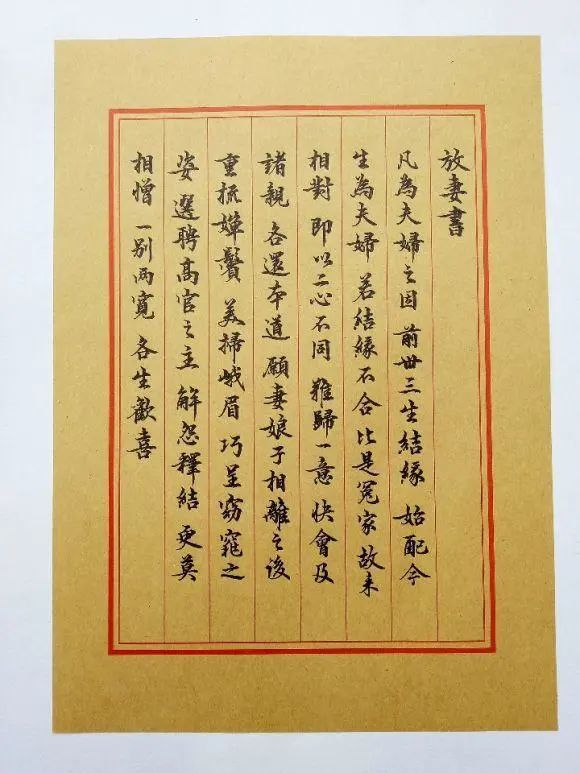 放妻書
凡為夫婦之因 前世三生結緣 始配今
生為夫婦 若結緣不合 比是冤家 故来
相對 即以二心不同 難歸一意 快會及
諸親 各還本道 願妻娘子相離之後
重梳嬋鬢 美掃峨眉 巧呈窈窕之
姿 選聘高官之主 解怨釋結 更莫
相憎 一别两寬 各生歡喜